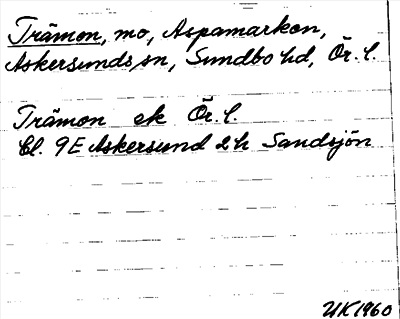 Trämon, mo, Aspamarken,
Askersunds sn, Sundbo hd, Ör. l.
Trämon ek Ör. l.
Bl. 9E Askersund 2h Sandsjön
UK 1960